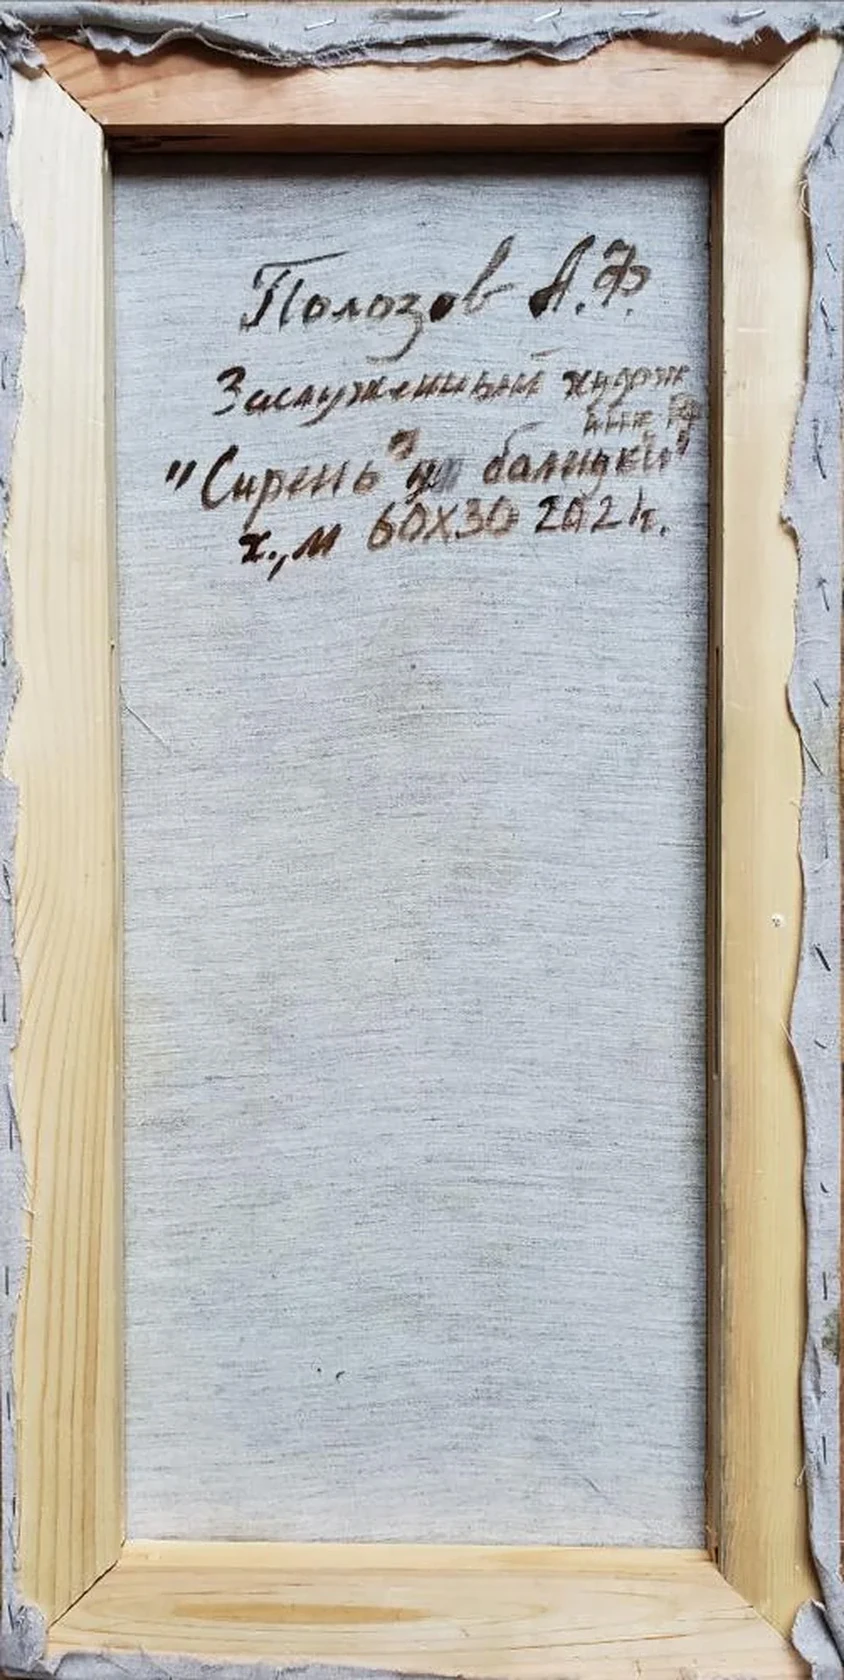 Полозов А.Ф.
Заслуженный худож
ник РФ
"Сирень" у балидки"
х., м 60х30 2021г.